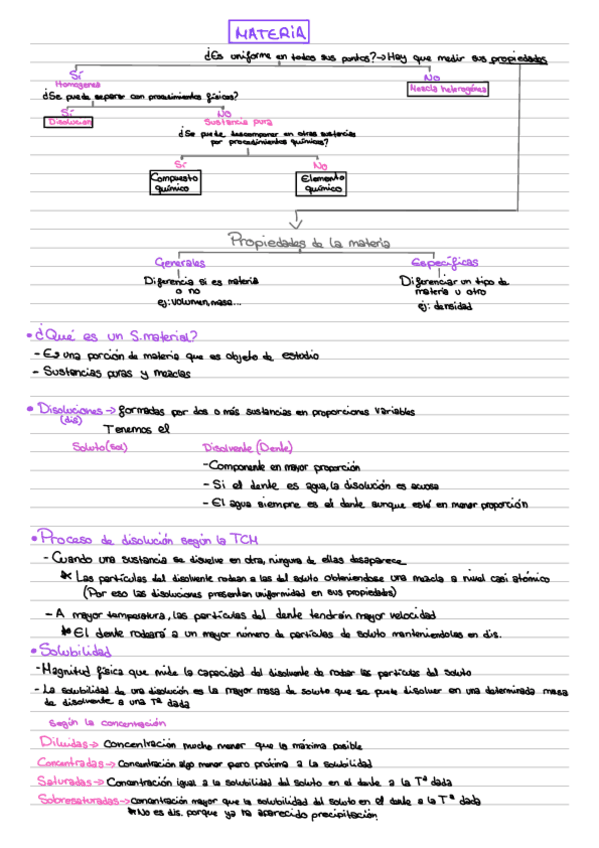 MATERIA
¿Es uniforme en todos sus puntos?→Hay que medir sus propiedades
Sí
No
Homogenea
Mezcla heterogénea
¿Se puede separar con procedimientos físicos?
Sí
No
Disolución
Sustancia pura
¿Se puede descomponer en otras sustancias
por procedimientos químicos?
Sí
No
Compuesto
químico
Elemento
químico
Propiedades de la materia
Generales
Específicas
Diferencia si es materia
o no
ej: volumen, masa...
Diferenciar un tipo de
materia u otro
ej: densidad
• ¿Qué es un S.material?
- Es una porción de materia que es objeto de estudio
- Sustancias puras y mezclas
• Disoluciones → formadas por dos o más sustancias en proporciones variables
(dis)
Tenemos el
Soluto (sol)
Disolvente (Dente)
- Componente en mayor proporción
- Si el dente es agua, la disolución es acuosa
- El agua siempre es el dente aunque esté en menor proporción
• Proceso de disolución según la TCM
- Cuando una sustancia se disuelve en otra, ninguna de ellas desaparece
* Las partículas del disolvente rodean a las del soluto obteniendose una mezcla a nivel casi atómico
(Por eso las disoluciones presentan uniformidad en sus propiedades)
- A mayor temperatura, las partículas del dente tendrán mayor velocidad
* El dente rodeará a un mayor número de partículas de soluto manteniendolas en dis.
• Solubilidad
- Magnitud física que mide la capacidad del disolvente de rodear las partículas del soluto
- La solubilidad de una disolución es la mayor masa de soluto que se puede disolver en una determinada masa
de disolvente a una Tª dada
Según la concentración
Diluidas → Concentración mucho menor que la máxima posible
Concentradas → Concentración algo menor pero próxima a la solubilidad
Saturadas → Concentración igual a la solubilidad del soluto en el dente a la Tª dada
Sobresaturadas → concentración mayor que la solubilidad del soluto en el dente a la Tª dada
* No es dis. porque ya ha aparecido precipitación.